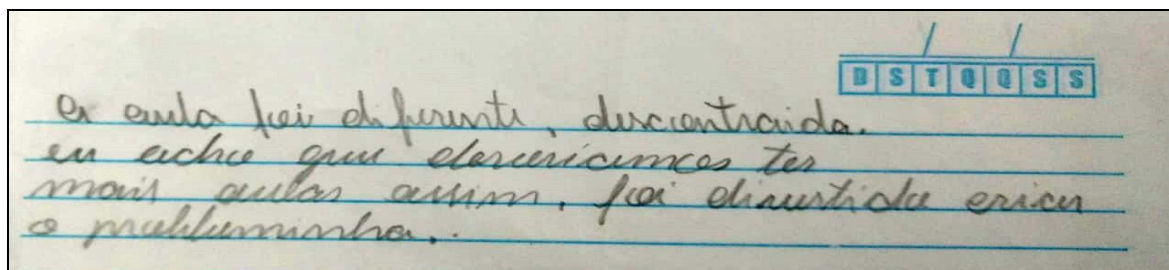 D S T Q Q S S
a aula foi diferente, descontraida.
eu acho que deveriamos ter
mais aulas assim, foi divertido criar
o probleminha..